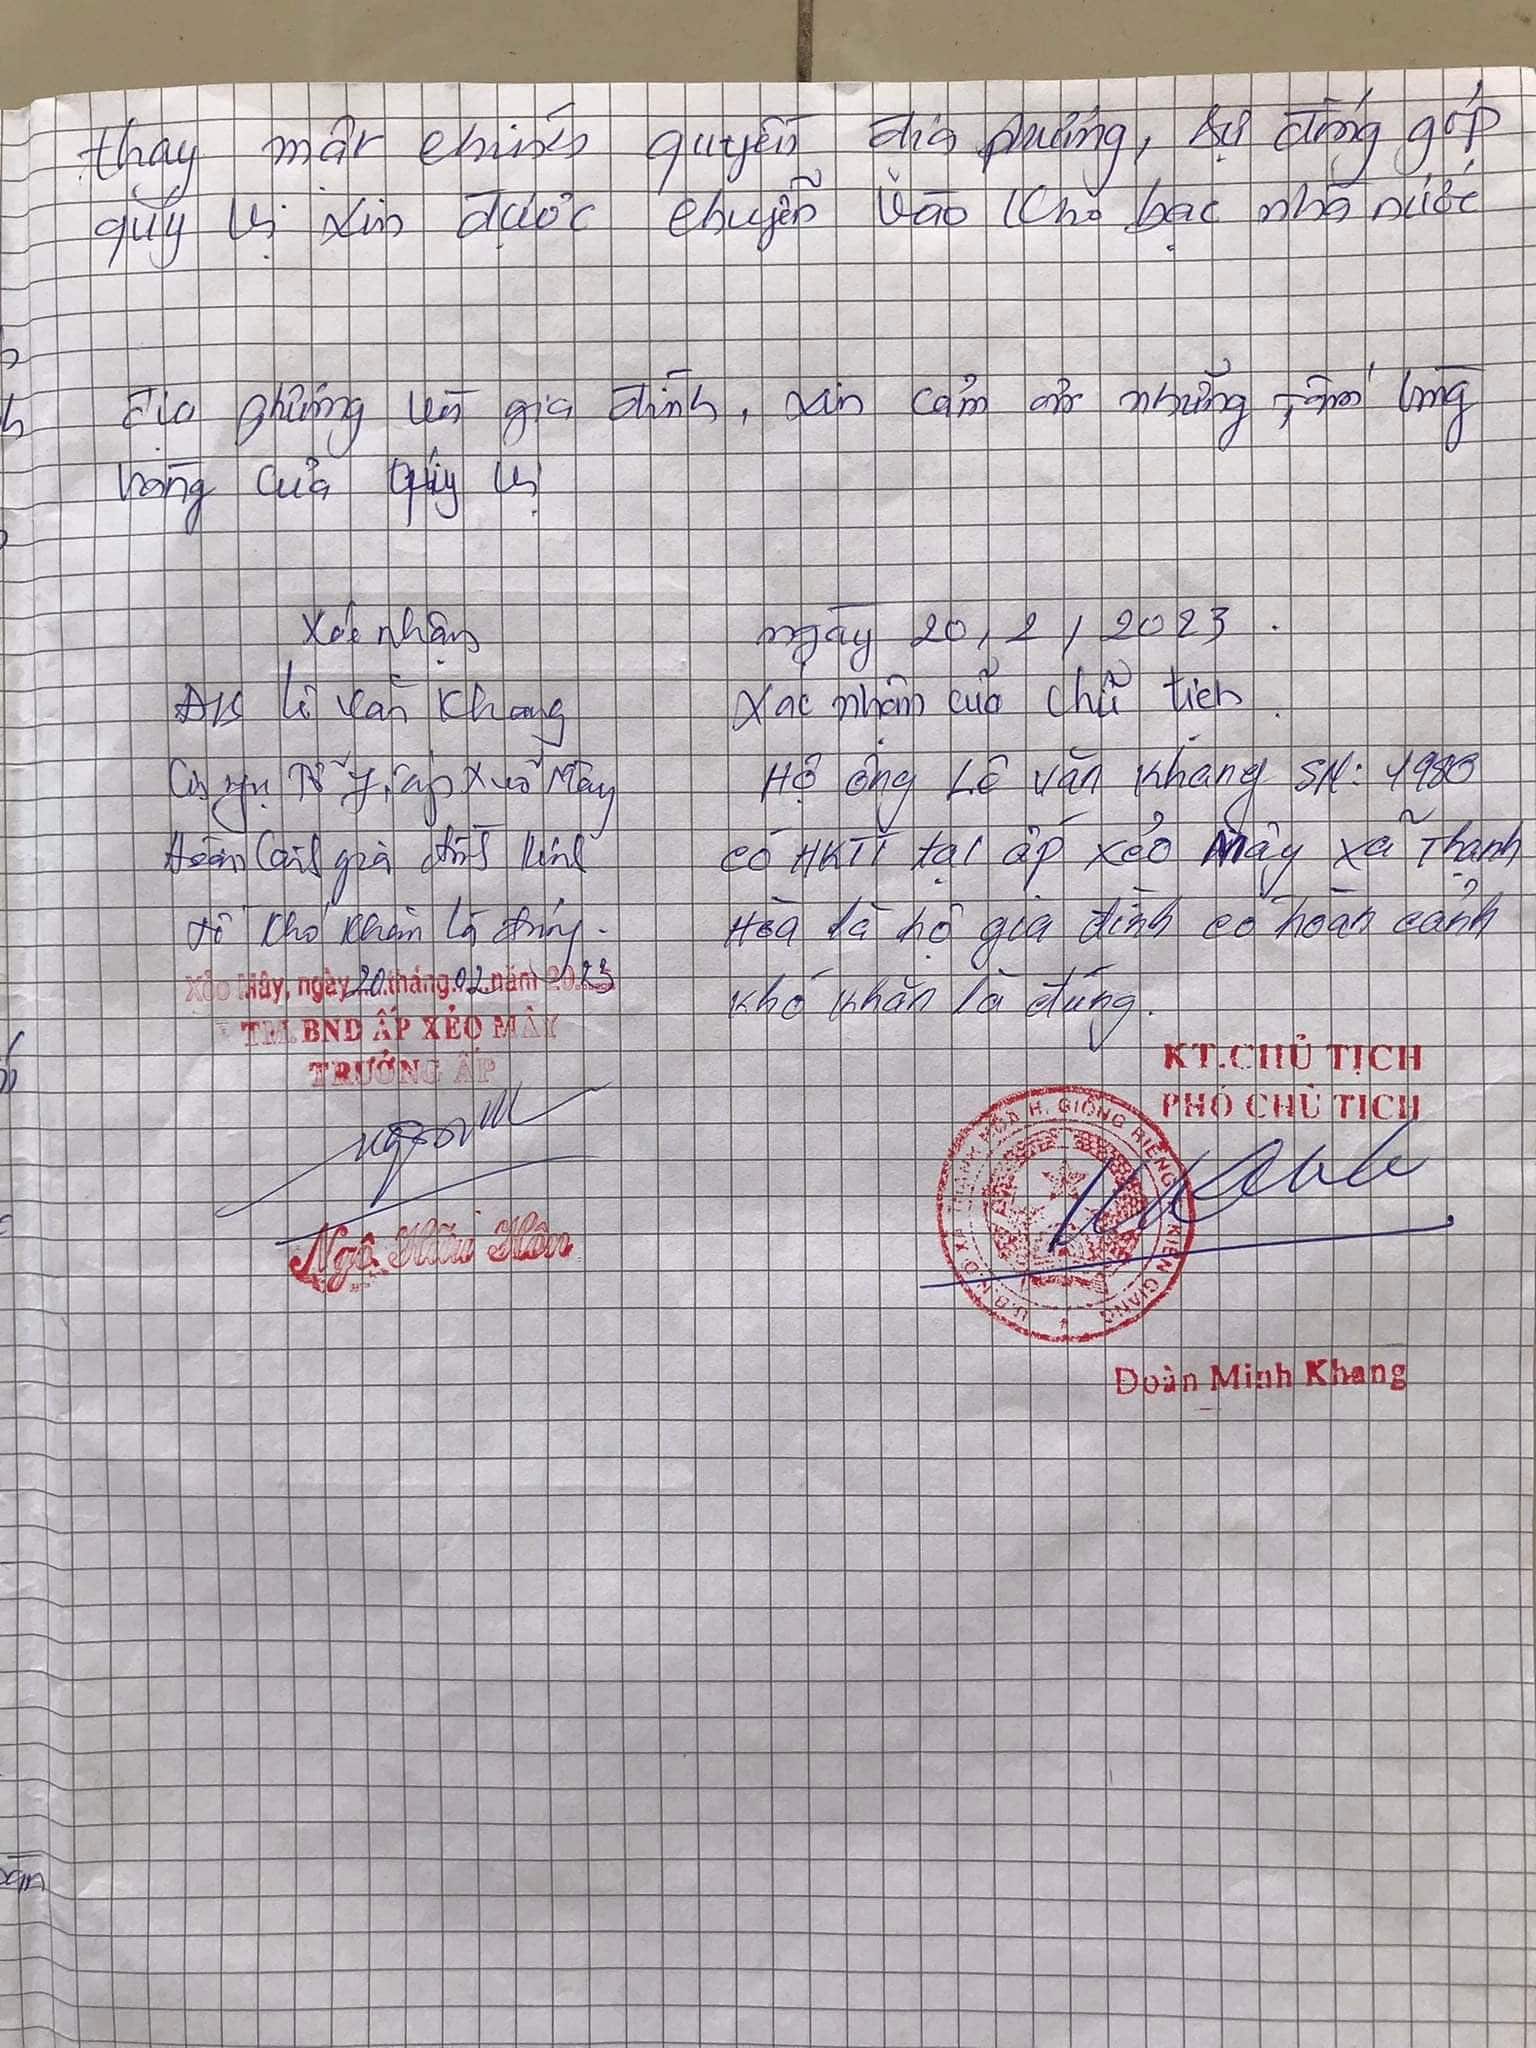 thay mặt chính quyền địa phương, sự đóng góp
quý vị xin được chuyển vào kho bạc nhà nước
Địa phương và gia đình, xin cảm ơn những tấm lòng
vàng của quý vị
Xác nhận
Lê Văn Khang
ấp Xẻo Mây
Hoàn cảnh gia đình kinh
tế khó khăn là đúng.
Xẻo Mây, ngày 20 tháng 02 năm 2023
TM. BND ẤP XẺO MÂY
TRƯỞNG ẤP
Ngô Hữu Hôn
ngày 20/2/2023.
Xác nhận của chủ tịch.
Hộ ông Lê Văn Khang SN: 1980
có HKTT tại ấp xẻo Mây xã Thạnh
Hòa là hộ gia đình có hoàn cảnh
khó khăn là đúng.
KT.CHỦ TỊCH
PHÓ CHỦ TỊCH
U.B.N.D XÃ THẠNH HÒA H. GIỒNG RIỀNG T. KIÊN GIANG
Đoàn Minh Khang